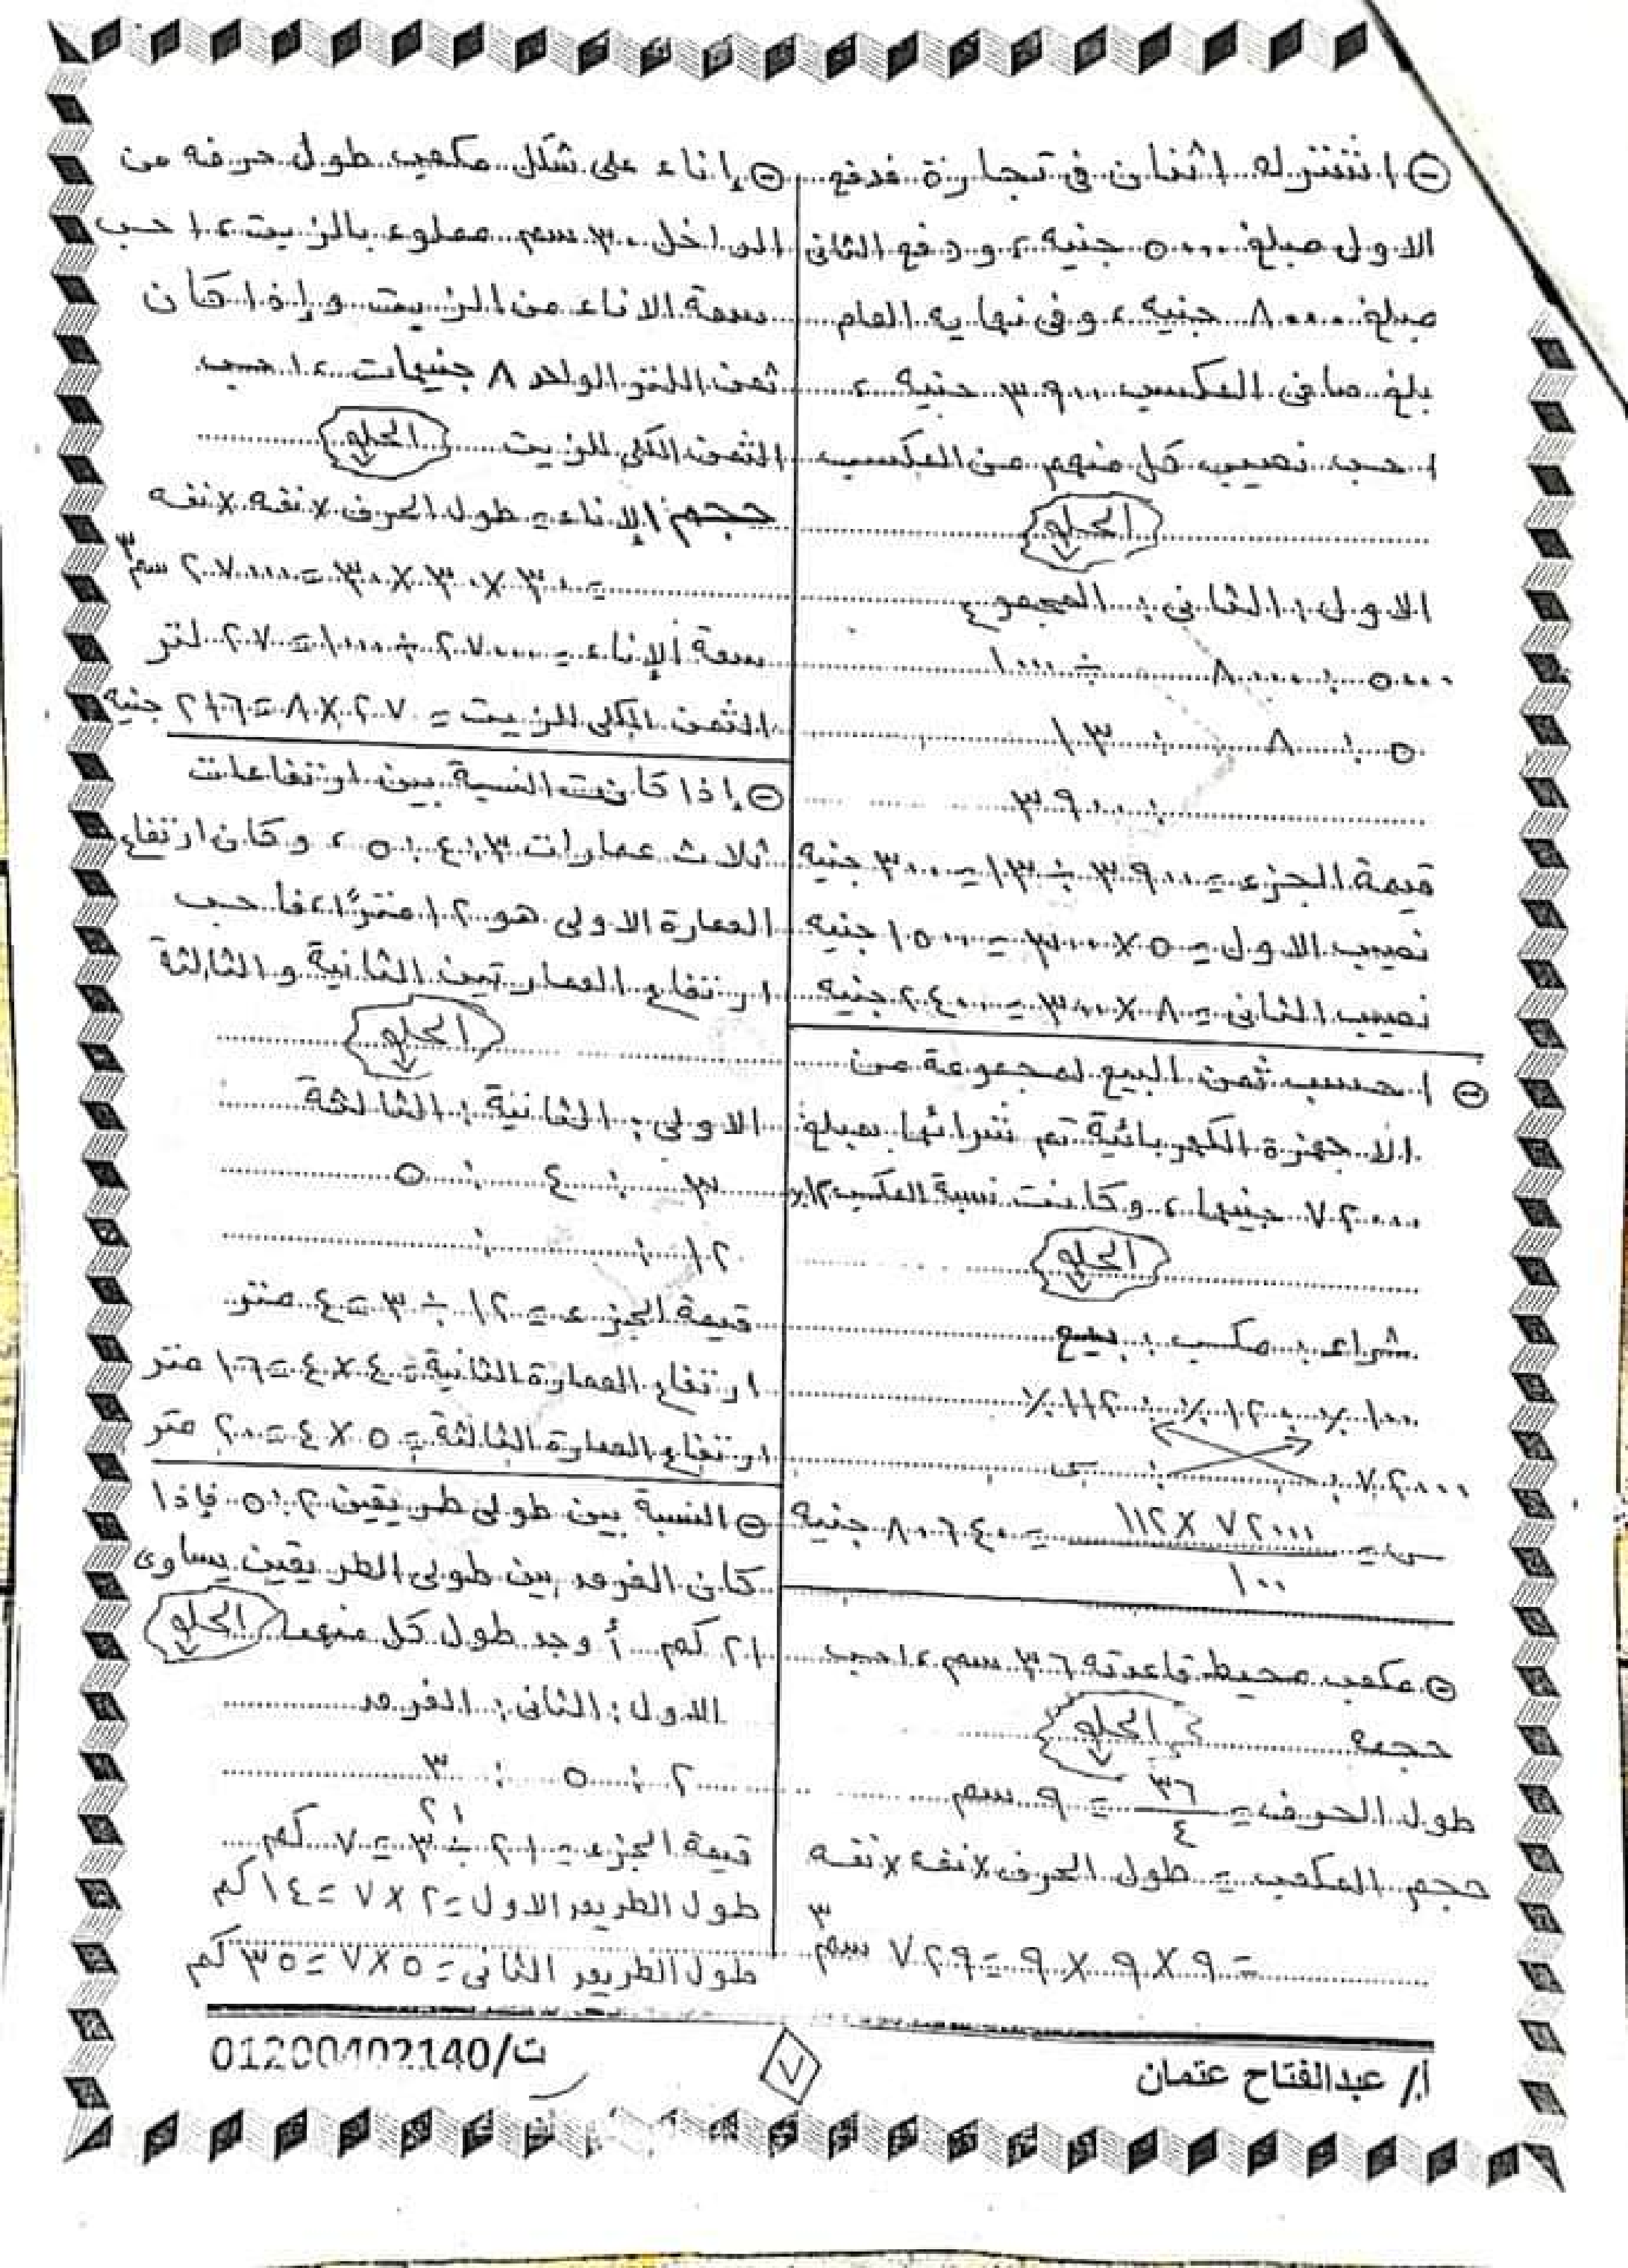 ⊖ اشترك اثنان فى تجارة فدفع
الاول مبلغ ٥٠٠٠ جنيه ، ودفع الثانى
مبلغ ٨٠٠٠ جنيه ، وفى نهايه العام
بلغ صافى المكسب ٣٩٠٠ جنيه ،
احسب نصيب كل منهم من المكسب
الحلو
الاول : الثانى : المجموع
٥٠٠٠ : ٨٠٠٠ ÷ ١٠٠٠
٥ : ٨ : ١٣
: ٣٩٠٠
قيمة الجزء = ٣٩٠٠ ÷ ١٣ = ٣٠٠ جنيه
نصيب الاول = ٥ × ٣٠٠ = ١٥٠٠ جنيه
نصيب الثانى = ٨ × ٣٠٠ = ٢٤٠٠ جنيه
⊖ احسب ثمن البيع لمجموعة من
الاجهزة الكهربائية تم شرائها بمبلغ
٧٢٠٠٠ جنيها ، وكانت نسبة المكسب ١٢٪
الحلو
شراء : مكسب : بيع
١٠٠٪ : ١٢٪ : ١١٢٪
٧٢٠٠٠ : : س
س = ٧٢٠٠٠ × ١١٢ = ٨٠٦٤٠ جنيه
١٠٠
⊖ مكعب محيط قاعدته ٣٦ سم ، احسب
حجمه
الحلو
طول الحرف = ٣٦ = ٩ سم
٤
حجم المكعب = طول الحرف × نفسه × نفسه
= ٩ × ٩ × ٩ = ٧٢٩ سم ٣
⊖ إناء على شكل مكعب طول حرفه من
الداخل ٣٠ سم مملوء بالزيت ، احسب
سعة الاناء من الزيت وإذا كان
ثمن اللتر الواحد ٨ جنيهات ، احسب
الثمن الكلى للزيت الحلو
حجم الإناء = طول الحرف × نفسه × نفسه
= ٣٠ × ٣٠ × ٣٠ = ٢٧٠٠٠ سم ٣
سعة الإناء = ٢٧٠٠٠ ÷ ١٠٠٠ = ٢٧ لتر
الثمن الكلى للزيت = ٢٧ × ٨ = ٢١٦ جنيه
⊖ إذا كانت النسبة بين ارتفاعات
ثلاث عمارات ٣ : ٤ : ٥ ، وكان ارتفاع
العمارة الاولى هو ١٢ مترًا ، فاحسب
ارتفاع العمارتين الثانية والثالثة
الحلو
الاولى : الثانية : الثالثة
٣ : ٤ : ٥
١٢ : :
قيمة الجزء = ١٢ ÷ ٣ = ٤ متر
ارتفاع العمارة الثانية = ٤ × ٤ = ١٦ متر
ارتفاع العمارة الثالثة = ٥ × ٤ = ٢٠ متر
⊖ النسبة بين طولى طريقين ٢ : ٥ فإذا
كان الفرق بين طولى الطريقين يساوى
٢١ كم أوجد طول كل منهما الحلو
الاول : الثانى : الفرق
٢ : ٥ : ٣
٢١
قيمة الجزء = ٢١ ÷ ٣ = ٧ كم
طول الطريق الاول = ٢ × ٧ = ١٤ كم
طول الطريق الثانى = ٥ × ٧ = ٣٥ كم
أ/ عبدالفتاح عتمان
٧
ت/01200402140